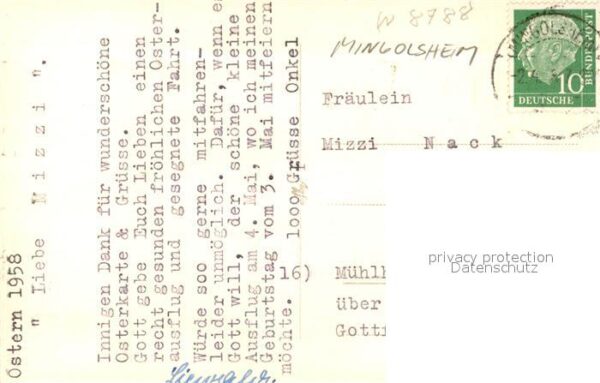 Ostern 1958
" Liebe Mizzi ".
Innigen Dank für wunderschöne
Osterkarte & Grüsse.
Gott gebe Euch Lieben einen
recht gesunden fröhlichen Oster-
ausflug und gesegnete Fahrt.
Würde soo gerne mitfahren-
leider unmöglich. Dafür, wenn es
Gott will, der schöne kleine
Ausflug am 4. Mai, wo ich meinen
Geburtstag vom 3. Mai mitfeiern
möchte. 1ooo Grüsse Onkel
W 8788
MINGOLSHEIM
10
DEUTSCHE
BUNDESPOST
Fräulein
Mizzi Nack
16) Mühlh
über
Gotti
privacy protection
Datenschutz